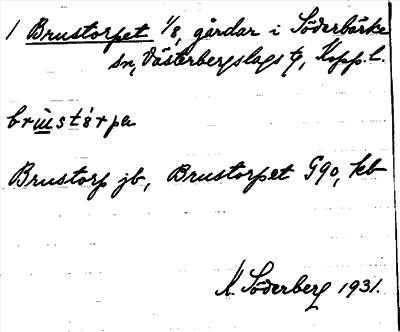 1 Brustorpet 1/8, gårdar i Söderbärke
sn, Västerbergslags tg, Kopp. l.
brùstórpa
Brustorp jb, Brustorpet G90, kb
M. Söderberg 1931.